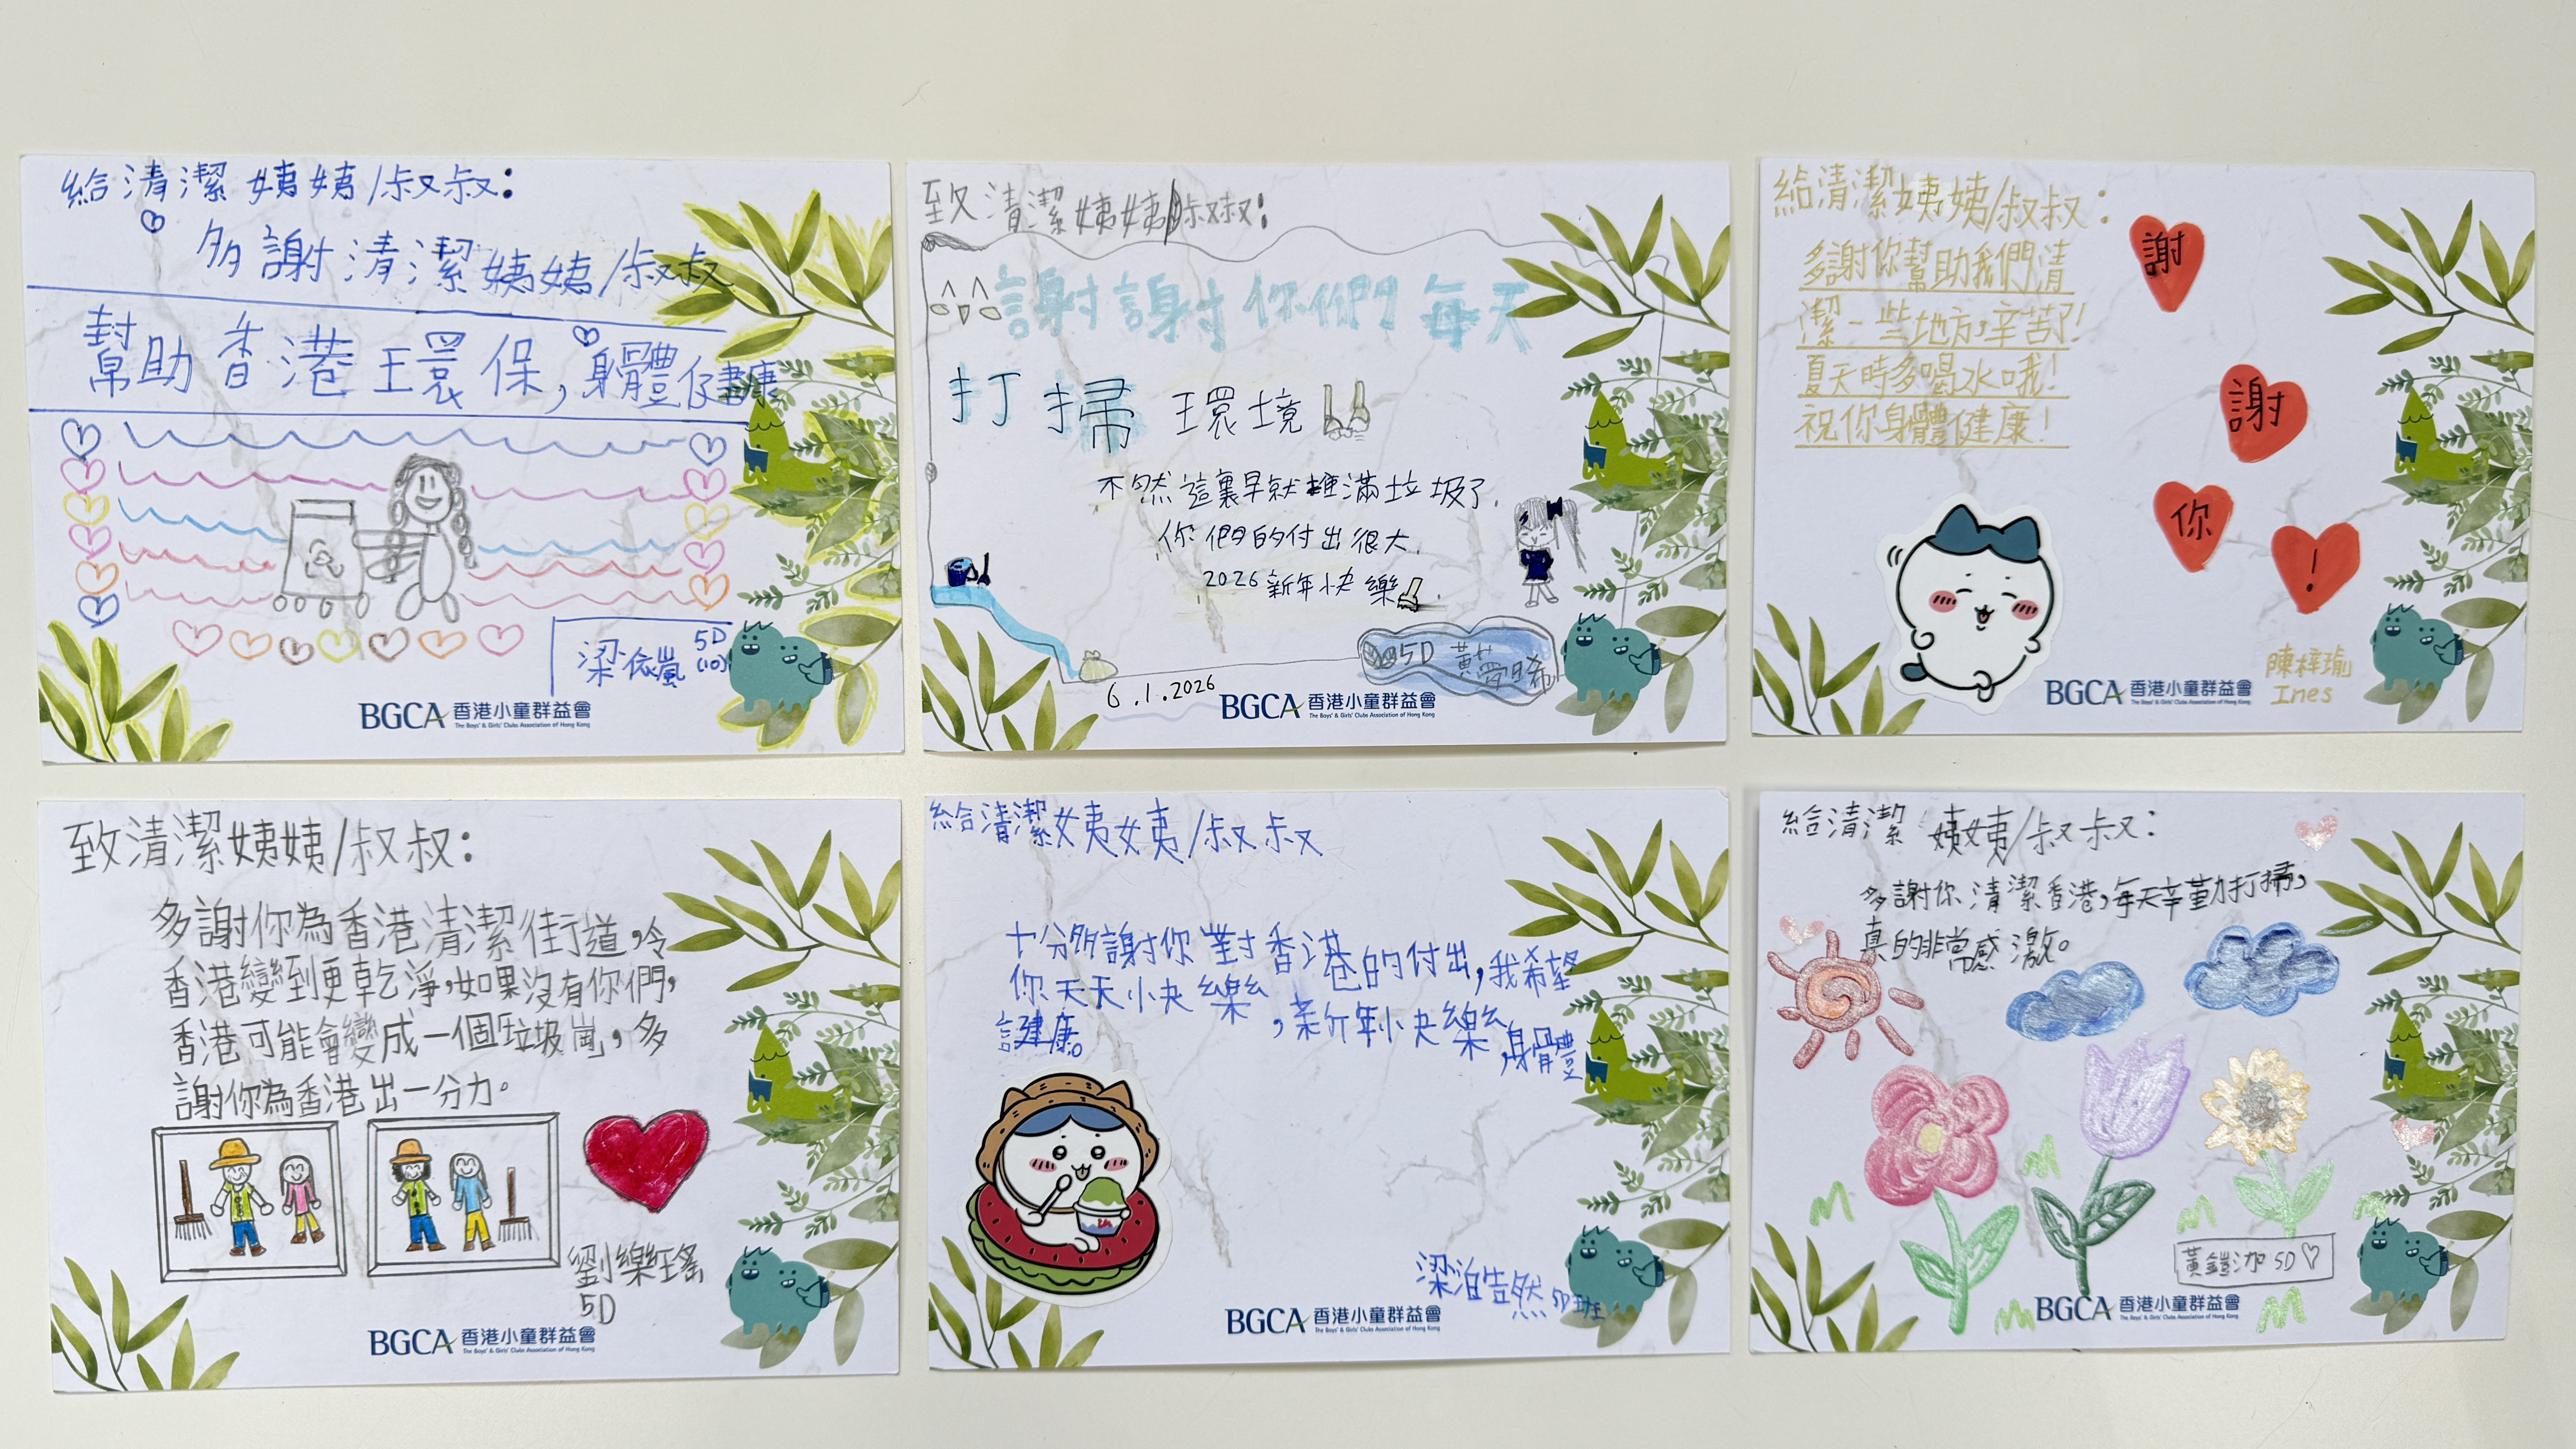 給清潔姨姨/叔叔：
多謝清潔姨姨/叔叔
幫助香港環保，身體健康
梁依嵐 5D
(10)
BGCA 香港小童群益會
The Boys' & Girls' Clubs Association of Hong Kong
致清潔姨姨/叔叔：
謝謝你們每天
打掃環境
不然這裏早就堆滿垃圾了.
你們的付出很大.
2026新年快樂
5D 黃愛晞
6.1.2026
BGCA 香港小童群益會
The Boys' & Girls' Clubs Association of Hong Kong
給清潔姨姨/叔叔：
多謝你幫助我們清
潔一些地方，辛苦了!
夏天時多喝水哦!
祝你身體健康!
謝
謝
你
!
陳梓瑜
Ines
BGCA 香港小童群益會
致清潔姨姨/叔叔：
多謝你為香港清潔街道，令
香港變到更乾淨，如果沒有你們，
香港可能會變成一個垃圾崗，多
謝你為香港出一分力。
劉樂瑤
5D
BGCA 香港小童群益會
The Boys' & Girls' Clubs Association of Hong Kong
給清潔姨姨/叔叔
十分多謝你對香港的付出，我希望
你天天快樂，新年快樂，身體
健康。
梁皓然 5D班
BGCA 香港小童群益會
The Boys' & Girls' Clubs Association of Hong Kong
給清潔姨姨/叔叔：
多謝你清潔香港，每天辛勤打掃，
真的非常感激。
黃鎧加 5D♡
BGCA 香港小童群益會
The Boys' & Girls' Clubs Association of Hong Kong